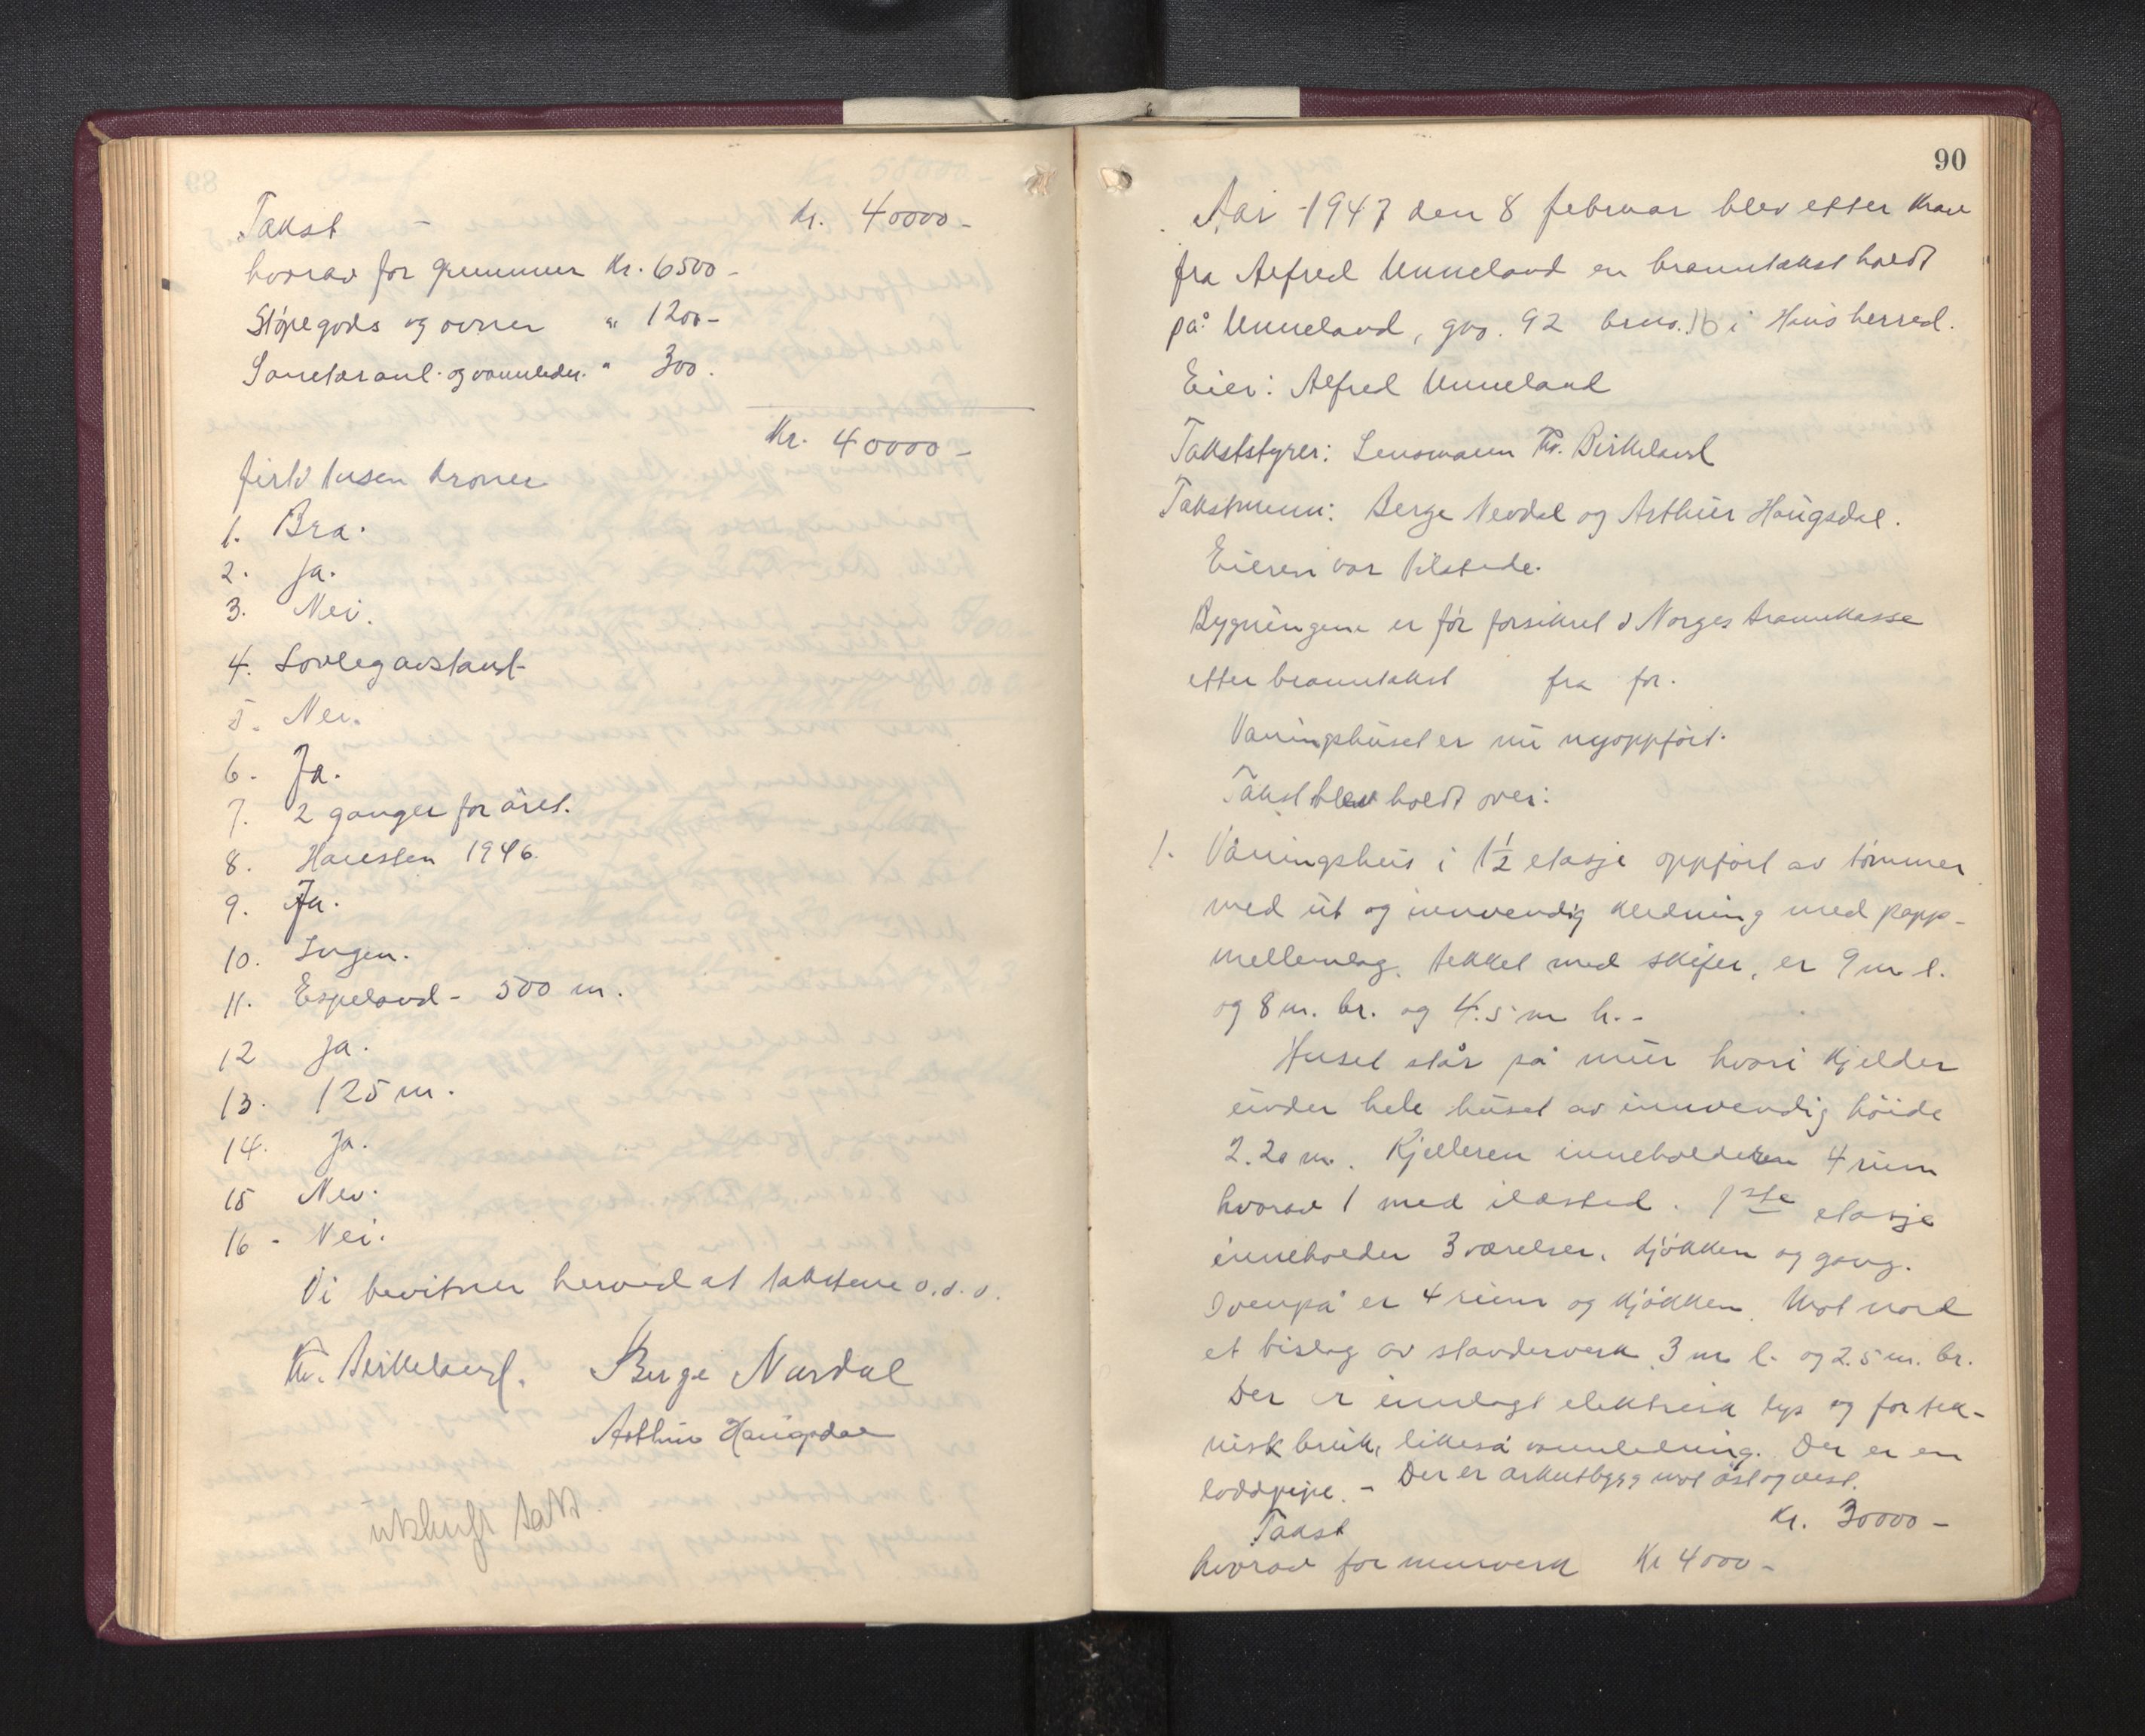 Takst Kr. 40000 -
hvorav for grunnmur Kr. 6500 -
Støpegods og ovner " 1200 -
Sanetæranl. og vannleder. " 300.
Kr. 40000 -
firti tusen kroner
1. Bra.
2. Ja.
3. Nei.
4. Lovleg avstand
5. Nei.
6. Ja.
7. 2 ganger for året.
8. Høuesten 1946.
9. Ja.
10. Ingen.
11. Espeland - 500 m.
12 Ja.
13. 125 m.
14. Ja.
15 Nei.
16 - Nei.
Vi bevitner herved at takstene o.s.v.
Kr. Birkeland. Børge Nævdal
Arthur Haugsdal
utskrift tatt.
90
Aar 1947 den 8 februar blev etter krav
fra Alfred Unneland en branntakst holdt
på Unneland, gno. 92 brno. 16 i Haus herred.
Eier: Alfred Unneland
Takststyrer: Lensmann Kr. Birkeland
Takstmenn: Berge Nevdal og Arthur Haugsdal.
Eieren var tilstede.
Bygningene er før forsikret i Norges Brannkasse
etter branntakst fra for.
Vaaningshuset er nu nyoppført.
Takst blev holdt over:
1. Våningshus i 1 1/2 etasje oppført av tømmer
med ut og innvendig kledning med papp-
mellemlag. tekket med skifer, er 9 m l.
og 8 m. br. og 4.5 m h. -
Huset står på mur hvori kjelder
under hele huset av innvendig høide
2.20 m. Kjelleren inneholder 4 rum
hvorav 1 med ildsted. 1ste etasje
inneholder 3 værelser, kjøkken og gang.
Ovenpå er 4 rum og kjøkken. Mot nord
et bislag av stenderverk 3 m l. og 2.5 m. br.
Der er innlagt elektrisk lys og for tek-
nisk bruk, likeså vannledning. Der er en
loddpipe. - Der er arkutbygg mot øst og vest.
Takst Kr. 30000 -
hvorav for murverk Kr 4000 -